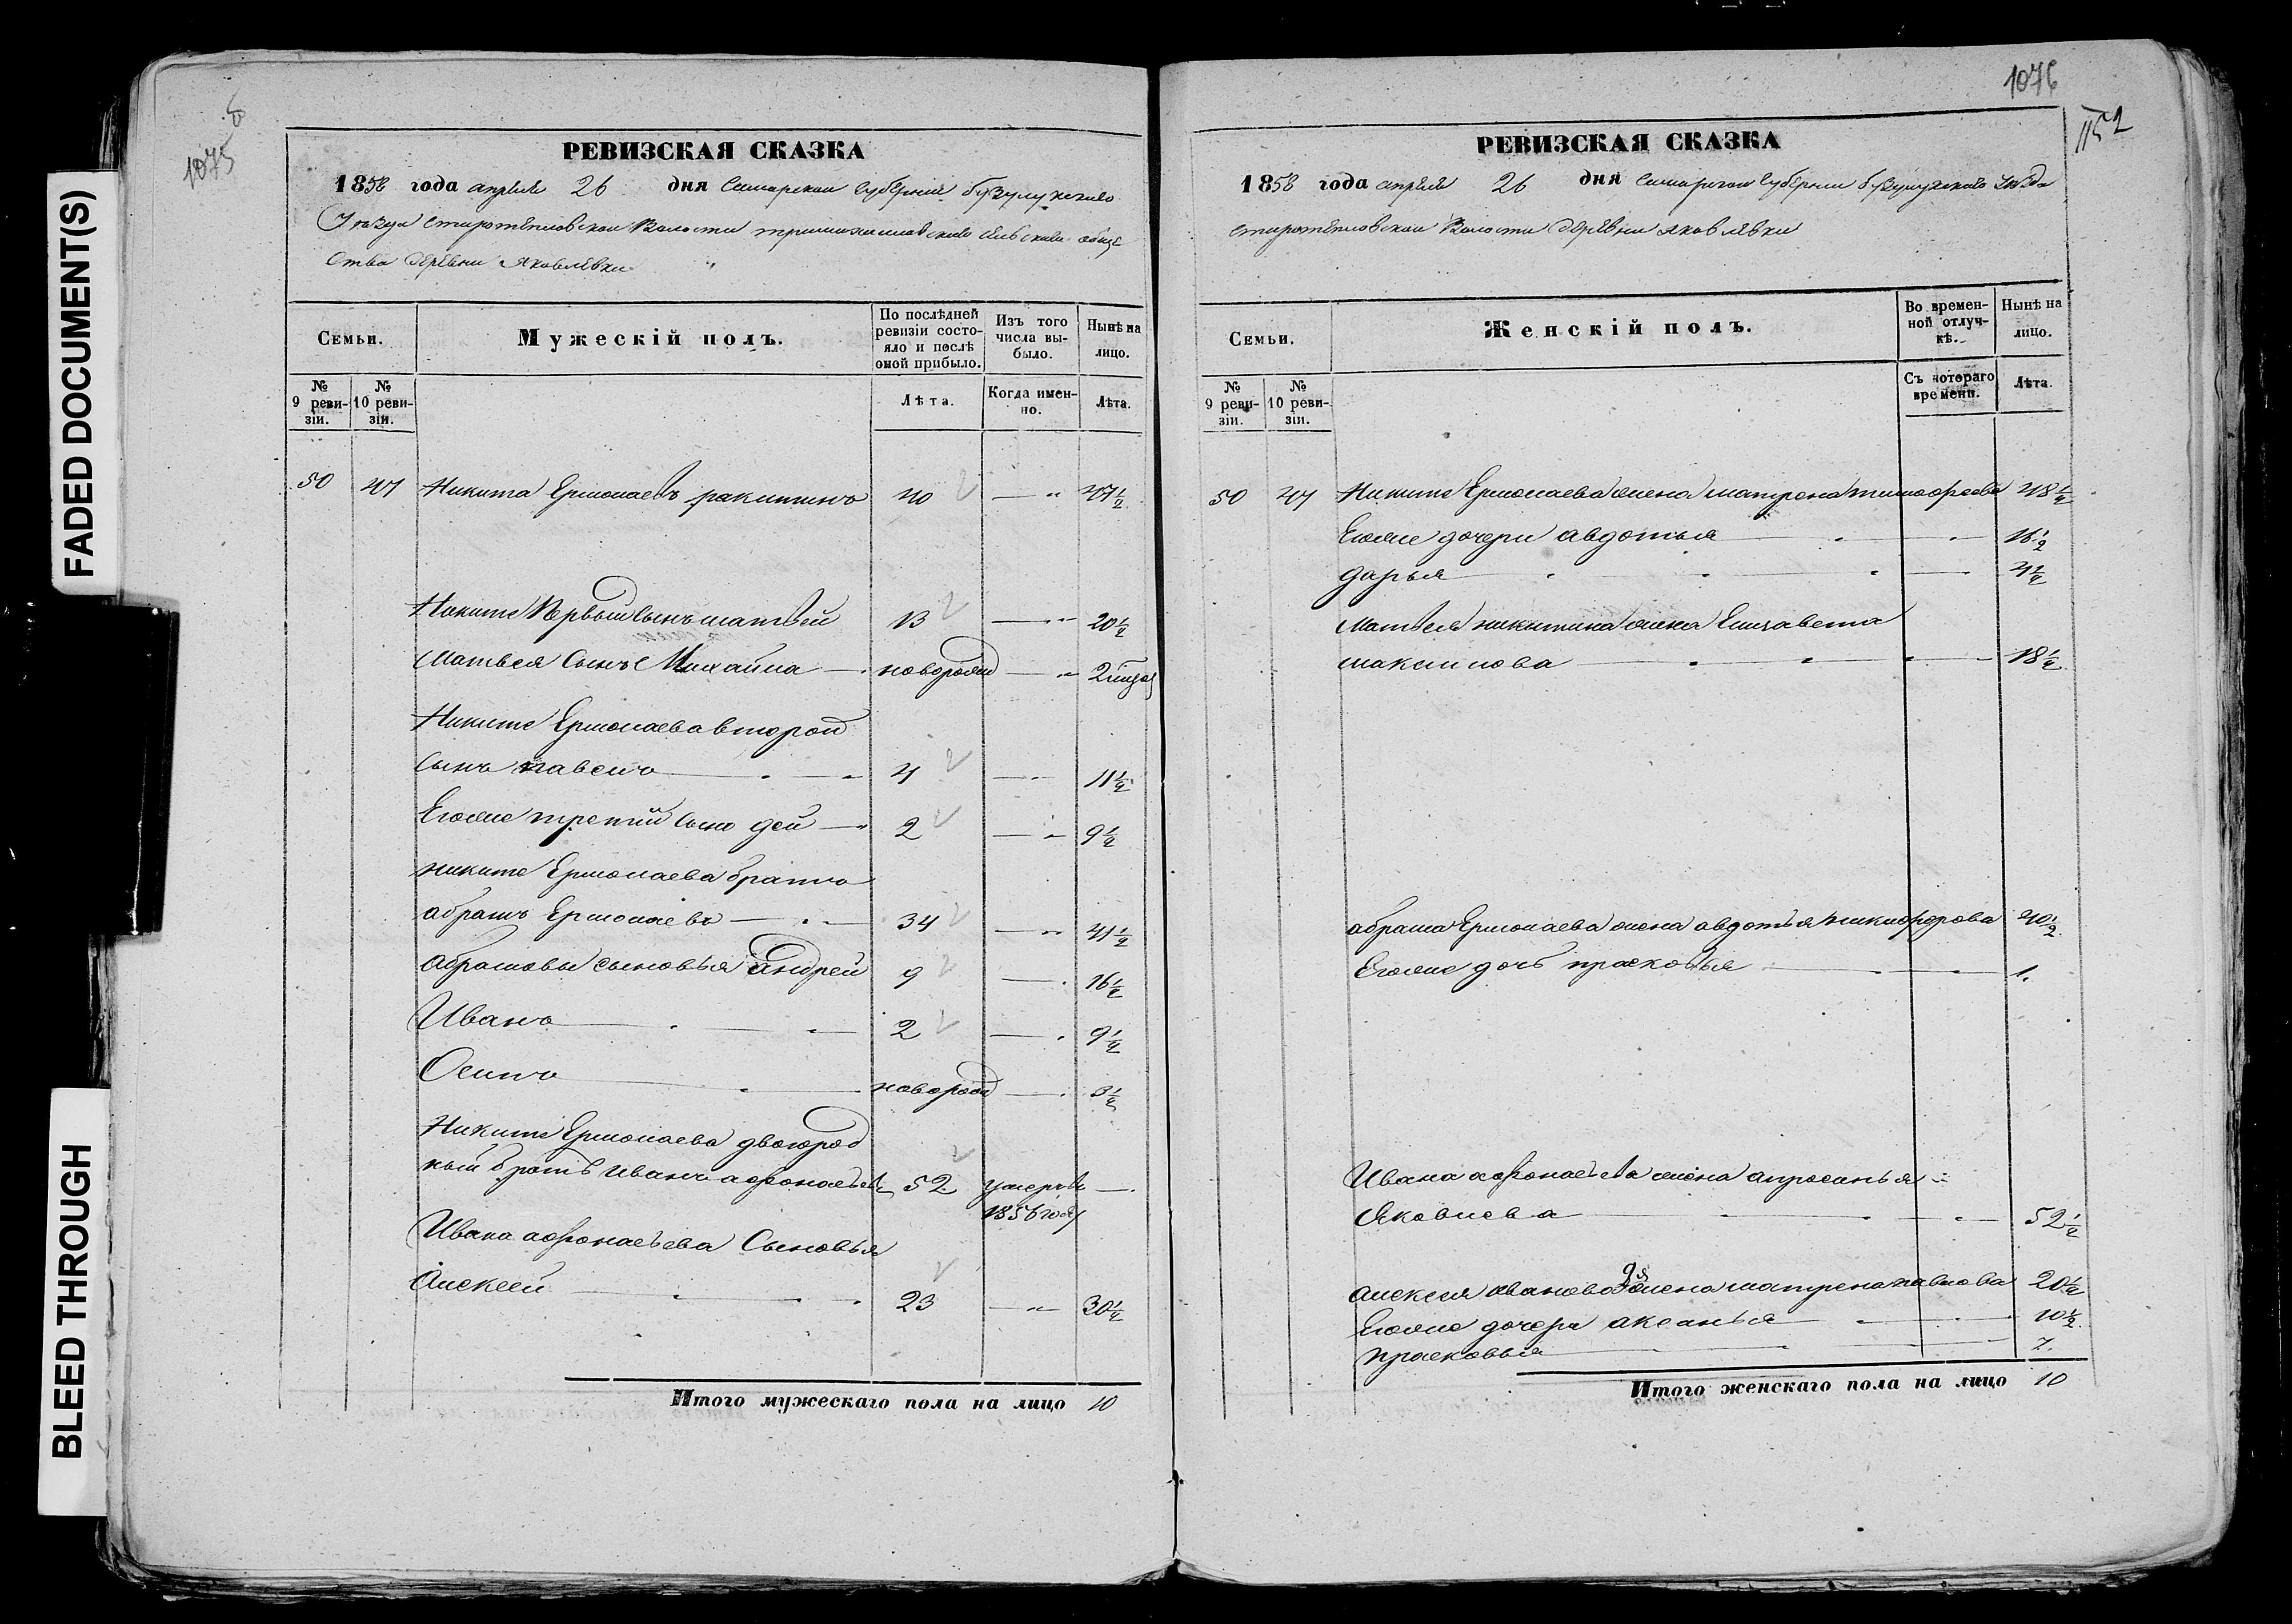 FADED DOCUMENT(S)
BLEED THROUGH
1075
РЕВИЗСКАЯ СКАЗКА
1858 года апреля 26 дня Самарской Губернии бузулукского
Уезда старотепловской Волости сельского обще
ства деревни Яковлевки
Семьи.
Мужескій полъ.
По послѣдней ревизіи состояло и послѣ оной прибыло.
Изъ того числа выбыло.
Нынѣ на лицо.
№ 9 ревизіи.
№ 10 ревизіи.
Лѣта.
Когда именно.
Лѣта.
50 47 Никита Ермолаевъ ракитинъ 40 — " 47½
Никите Первый Сынъ матвей 13 — " 20½
Матвея Сынъ Михайла — новорожд — "
Никите Ермолаева второй
Сынъ павелъ 4 — " 11½
Егоже третий сынъ — 2 — " 9½
никите Ермолаева братъ
абрамъ Ермолаевъ — 34 — " 41½
абрамовы сыновья андрей 9 — 16½
Иванъ 2 — 9½
Осипъ новорожд — 3½
Никите Ермолаева двоюрод
ный братъ иванъ афонасьевъ 52 умеръ —
1856 года
Ивана афонасьева Сыновья
Алексей 23 — " 30½
Итого мужескаго пола на лицо 10
1076
1152
РЕВИЗСКАЯ СКАЗКА
1858 года апреля 26 дня Самарской Губернии бузулукского уезда
старотепловской Волости деревни яковлевки
Семьи.
Женскій полъ.
Во временной отлучкѣ.
Нынѣ на лицо.
№ 9 ревизіи.
№ 10 ревизіи.
Съ котораго времени.
Лѣта.
50 47 Никите Ермолаева жена матрена тимофеева 48½
Егоже дочери авдотья 16½
дарья 4½
Матвея никитина жена Елизавета
максимова 18½
абрама Ермолаева жена авдотья никифорова 40½
Егоже дочь прасковья 1.
Ивана афонасьева жена апросинья
Яковлева 52½
алексея иванова жена матрена павлова 20½
Егоже дочери аксинья 10½
прасковья 7.
Итого женскаго пола на лицо 10